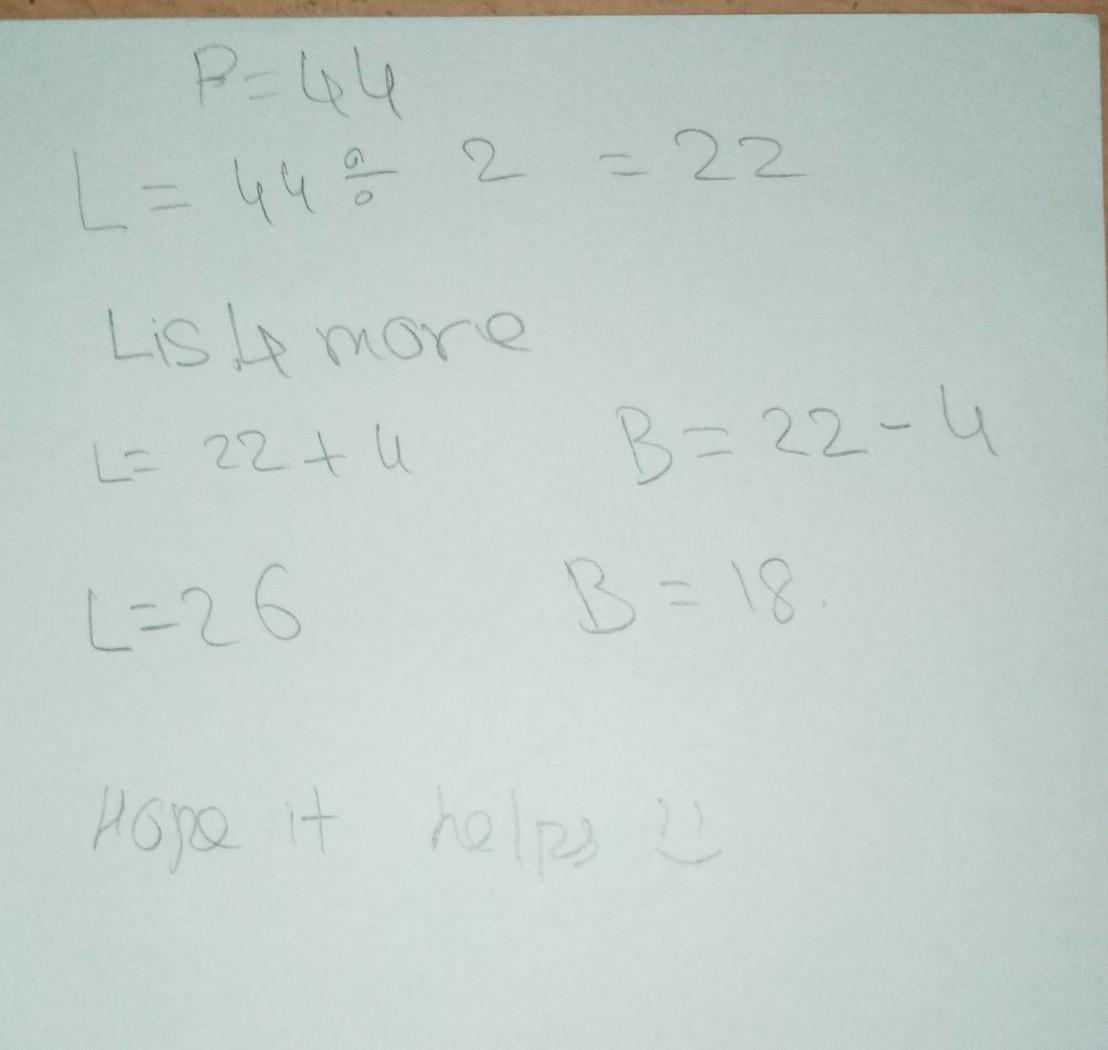 P=44
L = 44 ÷ 2 = 22
L is 4 more
L= 22+4 B=22-4
L=26 B=18.
Hope it helps :)